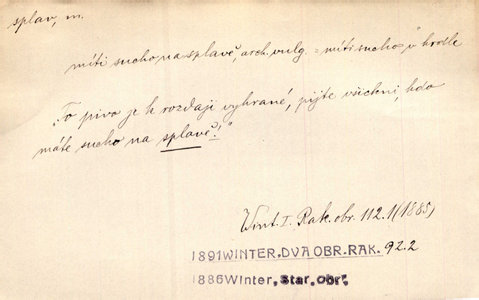 splav, m.
míti sucho na splavě, arch. vulg. = míti sucho v hrdle
„To pivo je k rozdaji vyhrané, pijte všichni, kdo
máte sucho na splavě!"
Wint. I. Rak. obr. 112.1 (1885)
1891 WINTER. DVA OBR. RAK. 92.2
1886 Winter, „Star. obr.“